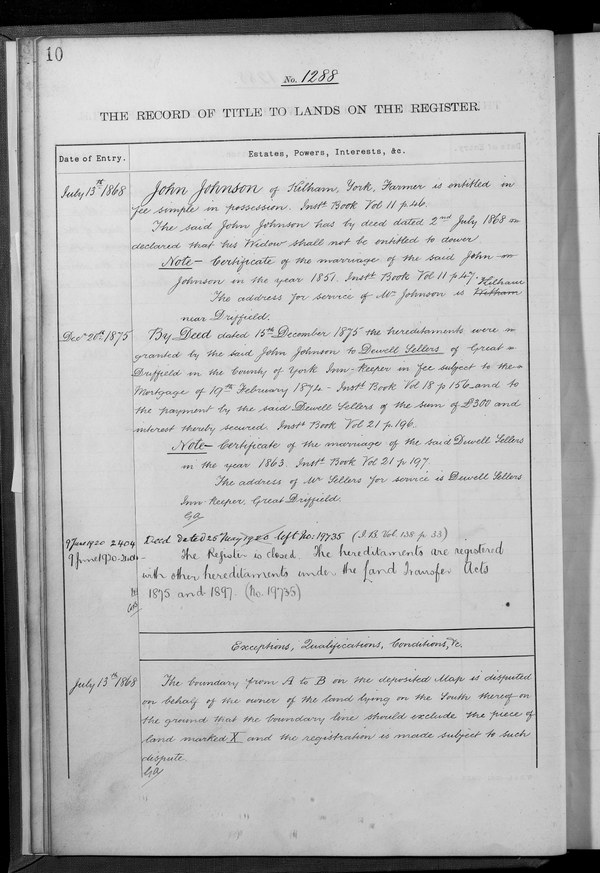 10
No. 1288
THE RECORD OF TITLE TO LANDS ON THE REGISTER.
Date of Entry.
Estates, Powers, Interests, &c.
July 13th 1868
John Johnson of Kelham, York, Farmer is entitled in
fee simple in possession. Inst. Book Vol 11 p. 46.
The said John Johnson has by deed dated 2nd July 1868
declared that his Widow shall not be entitled to dower.
Note - Certificate of the marriage of the said John
Johnson in the year 1851. Inst. Book Vol 11 p 47.
The address for service of Mr Johnson is Kelham
near Dryffield.
Decr 20th 1875
By Deed dated 15th December 1875 the hereditaments were
granted by the said John Johnson to Dewell Sellers of Great
Dryffield in the County of York Inn-keeper in fee subject to the
Mortgage of 19th February 1874 - Inst. Book Vol 18 p 156 and to
the payment by the said Dewell Sellers of the sum of £300 and
interest thereby secured. Inst. Book Vol 21 p. 196.
Note - Certificate of the marriage of the said Dewell Sellers
in the year 1863. Inst. Book Vol 21 p 197.
The address of Mr Sellers for service is Dewell Sellers
Inn keeper, Great Dryffield.
9 June 1920 2404
Deed dated 25 May left No. 19735 (I.B. Vol. 138 p. 33)
9 June 1920
The Register is closed. The hereditaments are registered
with other hereditaments under the Land Transfer Acts
1875 and 1897. (No. 19735)
Exceptions, Qualifications, Conditions, &c.
July 13th 1868
The boundary from A to B on the deposited Map is disputed
on behalf of the owner of the land lying on the South thereof on
the ground that the boundary line should exclude the piece of
land marked X and the registration is made subject to such
dispute.